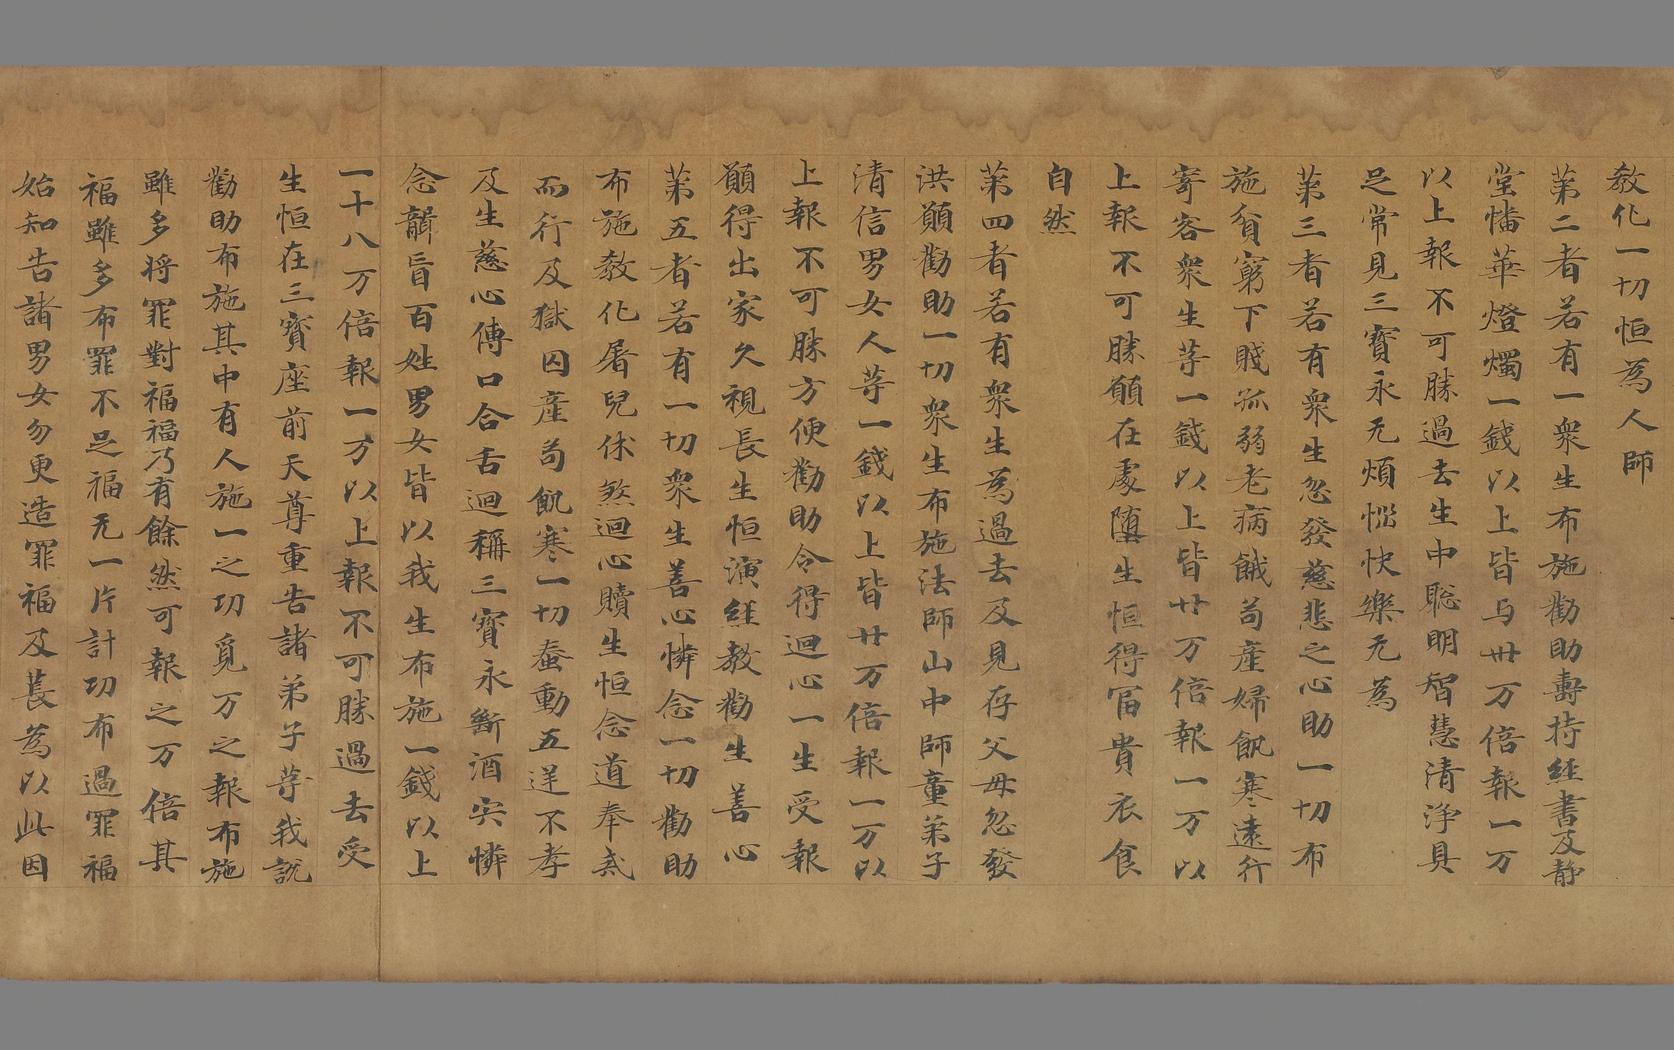 教化一切恒為人師
第二者若有一衆生布施勸助壽持經書及静
堂幡華燈燭一錢以上皆与卅万倍報一万
以上報不可勝過去生中聡明智慧清淨具
足常見三寶永无煩惱快樂无為
第三者若有衆生忽發慈悲之心助一切布
施貧窮下賤孤弱老病餓苟産婦飢寒遠行
寄客衆生䓁一錢以上皆廿万倍報一万以
上報不可勝願在處随生恒得冨貴衣食
自然
第四者若有衆生為過去及見存父母忽發
洪願勸助一切衆生布施法師山中師童弟子
清信男女人䓁一錢以上皆廿万倍報一万以
上報不可勝方便勸助令得迴心一生受報
願得出家久視長生恒演經教勸生善心
第五者若有一切衆生善心憐念一切勸助
布施教化屠兒休煞迴心贖生恒念道奉戒
而行及獄囚産苟飢寒一切蠢動五逆不孝
及生慈心傳口合舌迴稱三寶永斷酒宍憐
念聾盲百姓男女皆以我生布施一錢以上
一十八万倍報一万以上報不可勝過去受
生恒在三寶座前天尊重告諸弟子䓁我説
勸助布施其中有人施一之功覓万之報布施
雖多将罪對福福乃有餘然可報之万倍其
福雖多布罪不足福无一片計功布過罪福
始知告諸男女勿更造罪福及萇為以此因